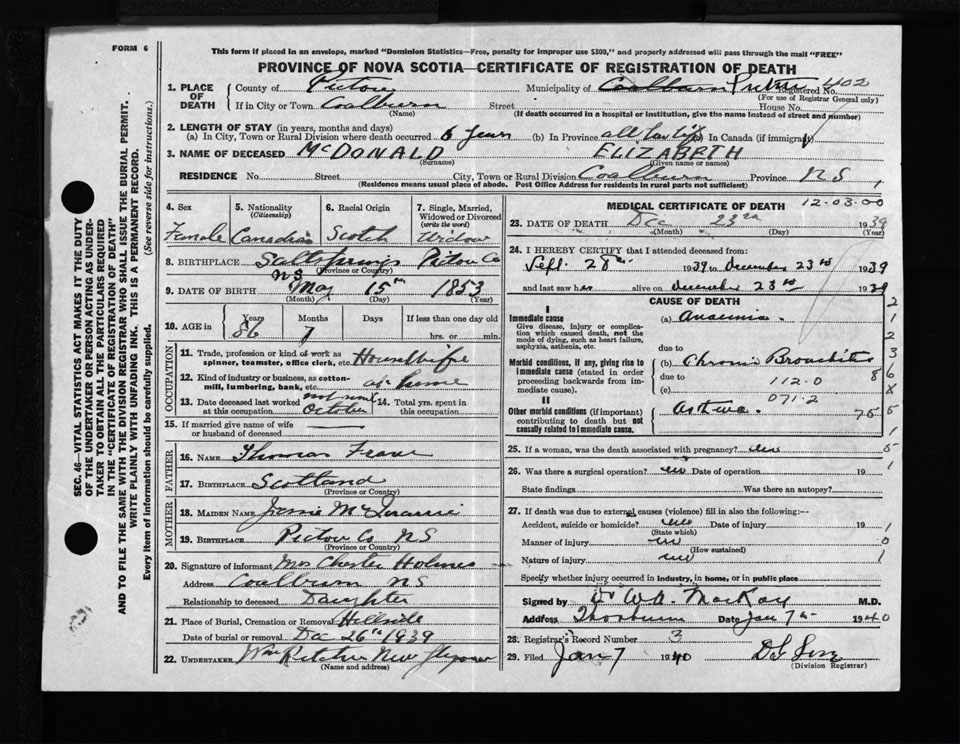 FORM 6
This form if placed in an envelope, marked "Dominion Statistics—Free, penalty for improper use $300," and properly addressed will pass through the mail "FREE"
PROVINCE OF NOVA SCOTIA—CERTIFICATE OF REGISTRATION OF DEATH
SEC. 46—VITAL STATISTICS ACT MAKES IT THE DUTY
OF THE UNDERTAKER OR PERSON ACTING AS UNDER-
TAKER TO OBTAIN ALL THE PARTICULARS REQUIRED
IN THE "CERTIFICATE OF REGISTRATION OF DEATH"
AND TO FILE THE SAME WITH THE DIVISION REGISTRAR WHO SHALL ISSUE THE BURIAL PERMIT.
WRITE PLAINLY WITH UNFADING INK. THIS IS A PERMANENT RECORD.
Every item of information should be carefully supplied. (See reverse side for instructions.)
1. PLACE OF DEATH
County of Pictou Municipality of Coalburn Pictou Registered No. 402
(For use of Registrar General only)
If in City or Town Coalburn Street House No.
(Name) (If death occurred in a hospital or institution, give the name instead of street and number)
2. LENGTH OF STAY (in years, months and days)
(a) In City, Town or Rural Division where death occurred 6 years (b) In Province all her life (c) In Canada (if immigrant)
3. NAME OF DECEASED McDONALD ELIZABETH
(Surname) (Given name or names)
RESIDENCE No. Street City, Town or Rural Division Coalburn Province N S
(Residence means usual place of abode. Post Office Address for residents in rural parts not sufficient)
4. Sex Female
5. Nationality (Citizenship) Canadian
6. Racial Origin Scotch
7. Single, Married, Widowed or Divorced (write the word) Widow
8. BIRTHPLACE Saltsprings Pictou Co
N S (Province or Country)
9. DATE OF BIRTH May 15th 1853
(Month) (Day) (Year)
10. AGE in Years Months Days If less than one day old
86 7 hrs. or min.
OCCUPATION
11. Trade, profession or kind of work as spinner, teamster, office clerk, etc. Housewife
12. Kind of industry or business, as cotton-mill, lumbering, bank, etc. at home
13. Date deceased last worked at this occupation October
14. Total yrs. spent in this occupation
15. If married give name of wife or husband of deceased
FATHER
16. NAME Thomas Fraser
17. BIRTHPLACE Scotland
(Province or Country)
MOTHER
18. MAIDEN NAME Jessie
19. BIRTHPLACE Pictou Co NS
(Province or Country)
20. Signature of informant Mrs Chester Holmes
Address Coalburn NS
Relationship to deceased Daughter
21. Place of Burial, Cremation or Removal Hillside
Date of burial or removal Dec 26th 1939
22. UNDERTAKER Wm New Glasgow
(Name and address)
MEDICAL CERTIFICATE OF DEATH 12-03-00
23. DATE OF DEATH Dec 23rd 1939
(Month) (Day) (Year)
24. I HEREBY CERTIFY that I attended deceased from:
Sept. 28th 1939 to December 23rd 1939
and last saw her alive on December 23rd 1939
CAUSE OF DEATH
I
Immediate cause
Give disease, injury or complication which caused death, not the mode of dying, such as heart failure, asphyxia, asthenia, etc.
(a) Anaemia.
due to
Morbid conditions, if any, giving rise to immediate cause (stated in order proceeding backwards from immediate cause).
(b) Chronic Bronchitis
due to 112.0
(c) 071.2
II
Other morbid conditions (if important) contributing to death but not causally related to immediate cause.
Asthma.
25. If a woman, was the death associated with pregnancy? no
26. Was there a surgical operation? no Date of operation 19
State findings Was there an autopsy?
27. If death was due to external causes (violence) fill in also the following:—
Accident, suicide or homicide? Date of injury 19
(State which)
Manner of injury
(How sustained)
Nature of injury
Specify whether injury occurred in industry, in home, or in public place
Signed by Dr W.A. MacKay M.D.
Address Thorburn Date Jan 7th 1940
28. Registrar's Record Number 3
29. Filed Jan 7 1940
(Division Registrar)